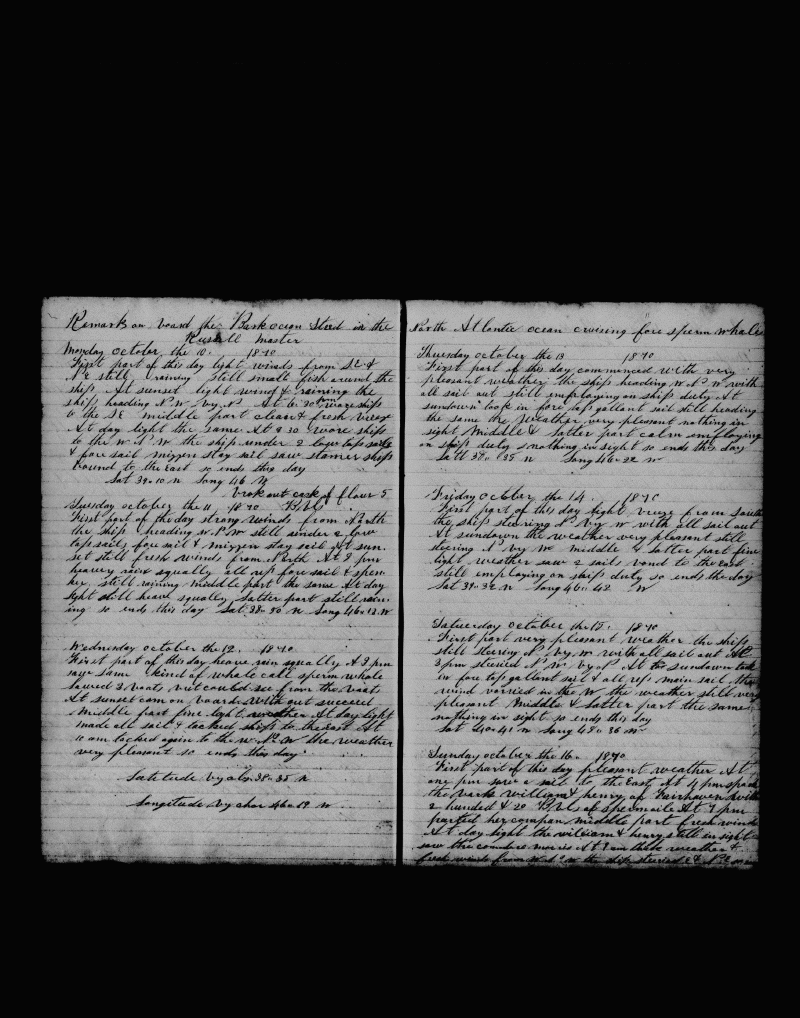 Remarks on board the Bark ocean Steed in the
Russell master
Monday october the 10 1870
First part of this day light winds from S.E &
N E still raining Still small fish around the
ship At sunset light wind & raining the
ship heading N W by N At 6.30 pm wore ship
to the S E middle part clean & fresh breze
At day light the same At 8 30 wore ship
to the W N W the ship under 2 low top sails
& fore sail mizzen stay sail saw stamer ship
bound to the East so ends this day
Lat 39.10 N Long 46 W
brok out cask of flour 5
Tuesday october the 11 1870
First part of the day strong winds from North
the ship heading W N W still under 2 low
top sails, fore sail & mizzen stay sail At sun
set still fresh winds from North At 9 pm
heavy rain squally all up fore sail & spen-
ker still raining middle part the same At day
light still heave squally latter part still rain
ing so ends this day Lat 38.50 N Long 46.13 W
Wednesday october the 12. 1870
First part of this day heave rain squally A 3 pm
saw same kind of whale call sperm whale
lowred 3 boats but could see from the boats
At sunset com on board with out succeed
Middle part fine light weather At day light
made all sail & tacked ship to the East At
10 am tacked again to the W N W the weather
very pleasant so ends this day
Latetude by obs 38.35 N
Longitude by chor 46.19 W
North Atlantic ocean cruising fore sperm whale
Thursday october the 13 1870
First part of this day commenced with very
pleasant weather the ship heading W N W with
all sail out still employing on ship duty At
sundown took in fore top gallant sail still heading
the same the weather very pleasant nothing in
sight Middle & latter part calm employing
on ship duty nothing in sight so ends this day
Latt 38. 35 N Long 46.22 W
Friday october the 14. 1870
First part of this day light breze from South
the ship steering N by W with all sail out
At sundown the weather very pleasant still
steering N by W middle & latter part fine
light weather saw 2 sails bond to the East
still employing on ship duty so ends the day
Lat 39.32 N Long 46.42 W
Saturday october the 15. 1870
First part very pleasant weather the ship
still steering N by W with all sail out At
3 pm steered N W by N At sundown took
in fore top gallant sail & all up main sail the
wind varried in the W the weather still very
pleasant Middle & latter part the same
nothing in sight so ends this day
Lat 40.41 N Long 48.36 W
Sunday october the 16. 1870
First part of this day pleasant weather At
one pm saw a sail to the East At 4 pm spook
the bark william & henry of Fairhaven with
2 hunded & 20 Bbls of sperm oile At 9 pm
parted her compan middle part fresh winds
At day light the william & henry still in sight
saw the morris At 8 am thick weather &
fresh winds from the ship steered